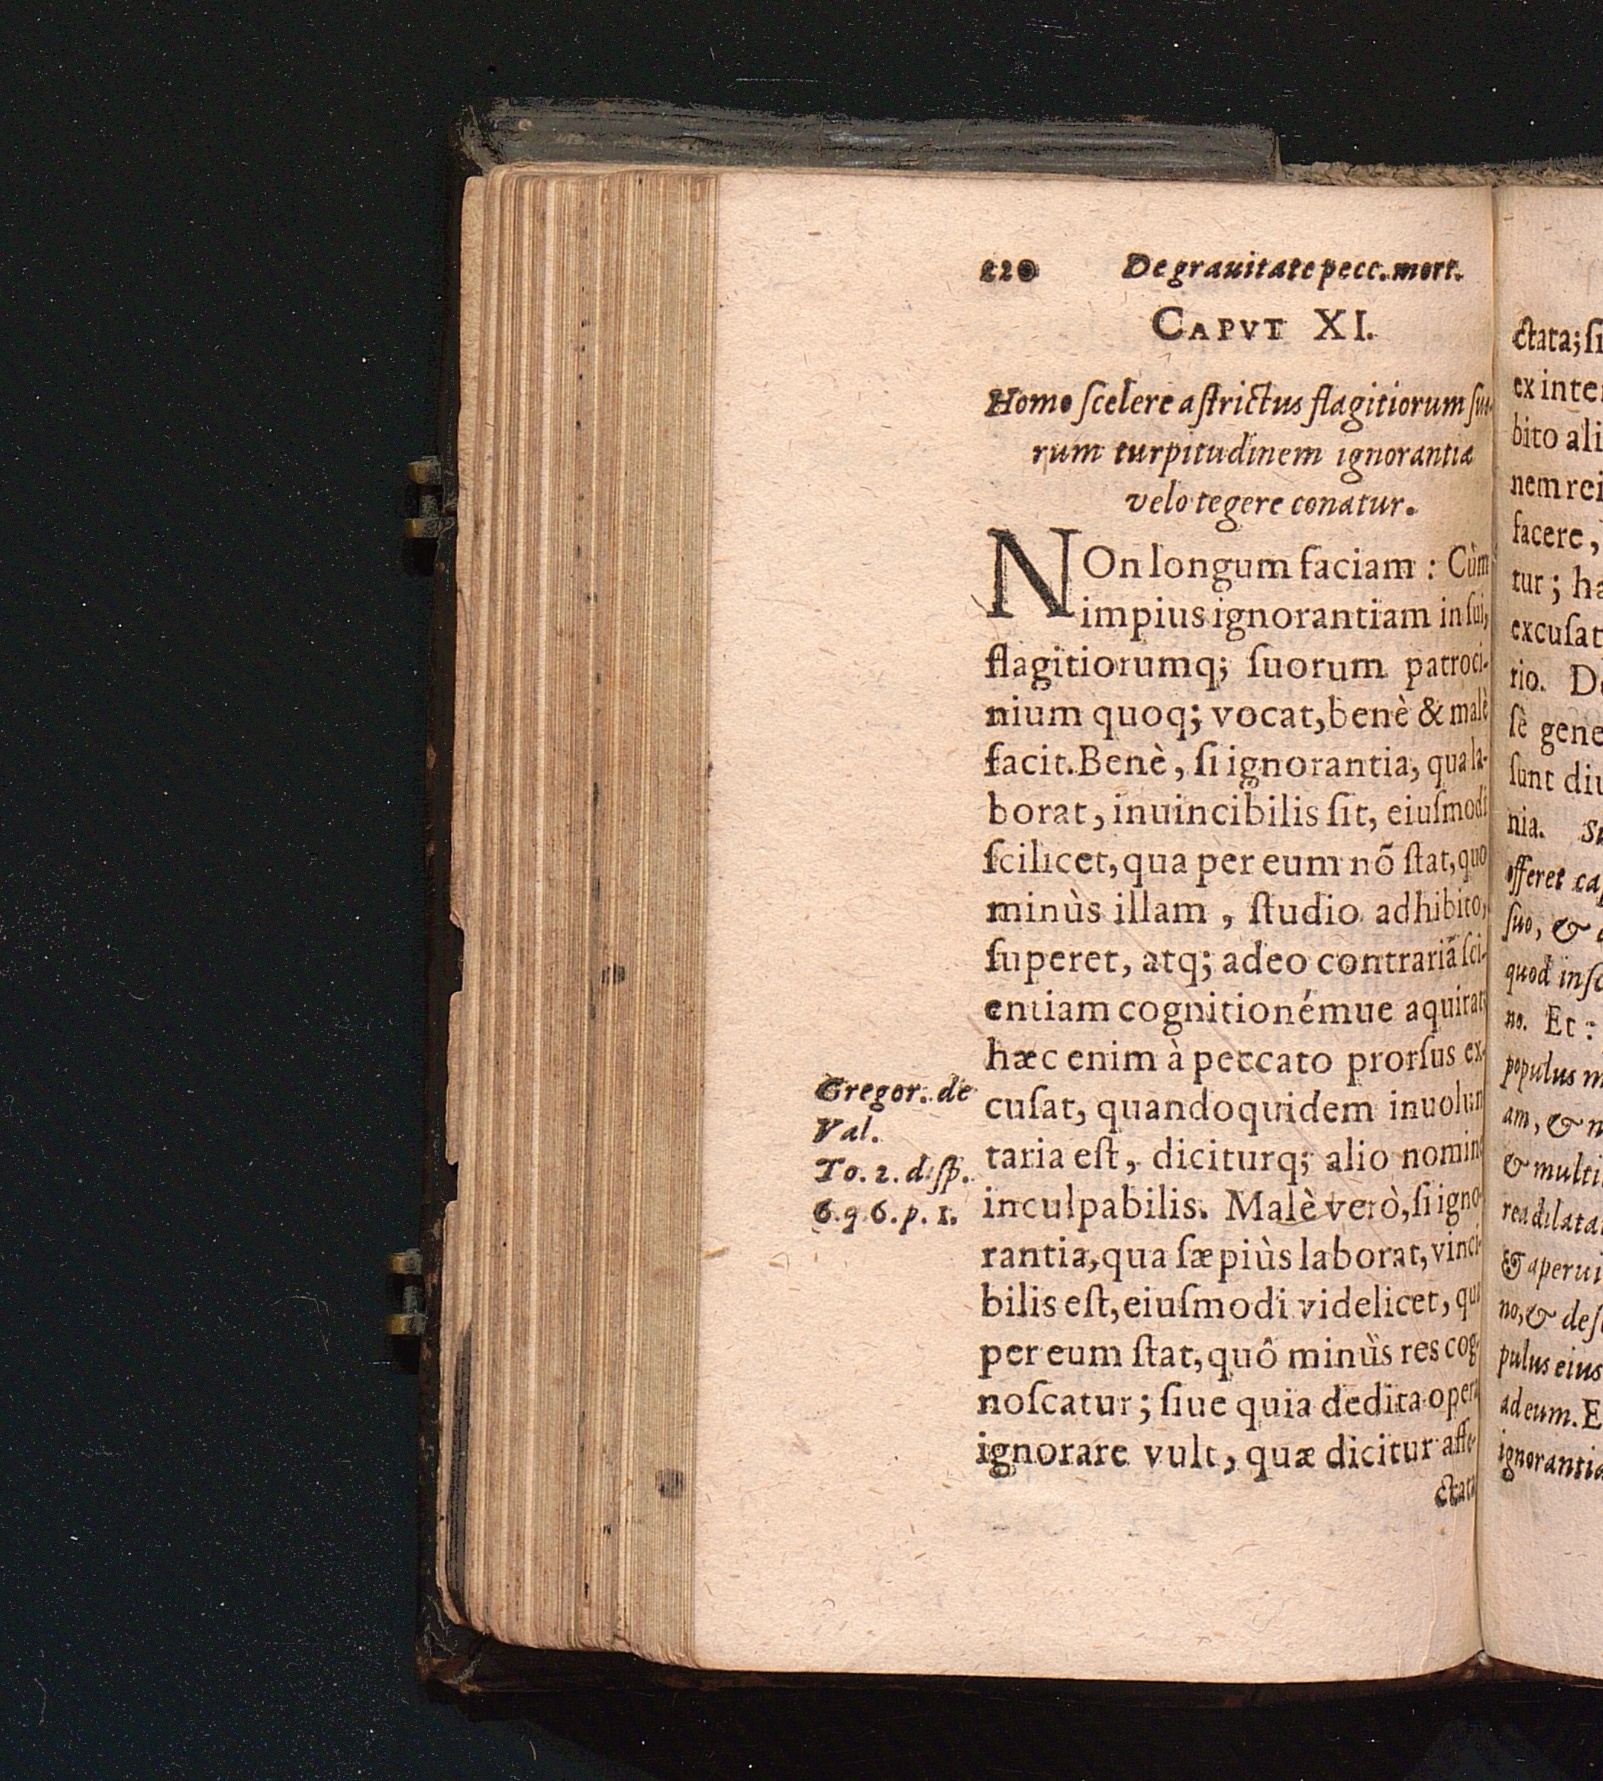 220 De grauitate pecc. mort.
CAPVT XI.
Homo ſcelere aſtrictus flagitiorum ſuo-
rum turpitudinem ignorantiæ
velo tegere conatur.
NOn longum faciam : Cùm
impius ignorantiam in ſui,
flagitiorumq; ſuorum patroci-
nium quoq; vocat, benè & malè
facit. Benè, ſi ignorantia, qua la-
borat, inuincibilis ſit, eiuſmodi
ſcilicet, qua per eum nõ ſtat, quo
minùs illam, ſtudio adhibito,
ſuperet, atq; adeo contrariã ſci-
entiam cognitionémue aquirat;
hæc enim à peccato prorſus ex-
cuſat, quandoquidem inuolun
taria eſt, diciturq; alio nomine
inculpabilis. Malè verò, ſi igno-
rantia, qua ſæpiùs laborat, vinci-
bilis eſt, eiuſmodi videlicet, qua
per eum ſtat, quô minùs res cog-
noſcatur; ſiue quia dedita opera
ignorare vult, quæ dicitur affe-
ctata
Gregor. de
Val.
To. 2. diſp.
6. q. 6. p. 1.
ctata; ſi
ex inte
bito ali
nem rei
facere,
tur; ha
excuſat
tio. De
ſè gene
ſunt diu
nia. Su
offeret ca
ſuo, & a
quod inſc
no. Et :
populus m
am, & n
& multi
rea dilata
& aperui
no, & deſc
pulus eius
ad eum. E
ignorantia